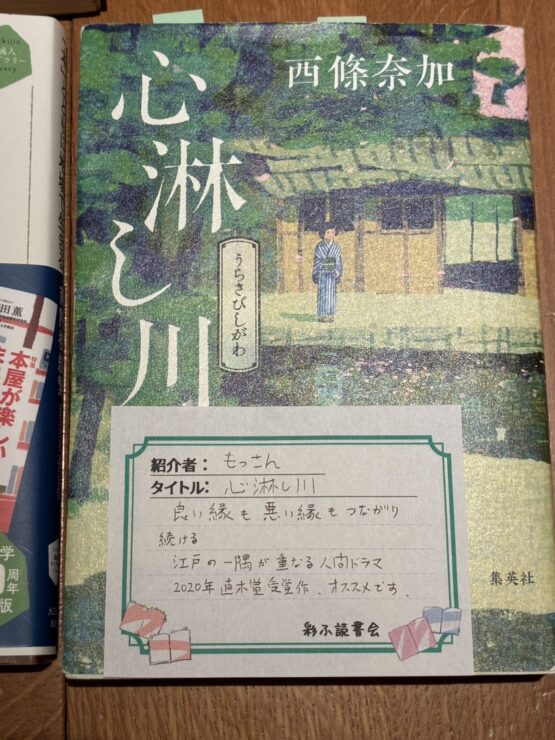 西條奈加
心淋し川
うらさびしがわ
紹介者: もっさん
タイトル: 心淋し川
良い縁も悪い縁もつながり
続ける
江戸の一隅が重なる人間ドラマ
2020年直木賞受賞作、オススメです.
彩ふ読書会
集英社
田薫
特集
本屋が楽しい
学
周年
版